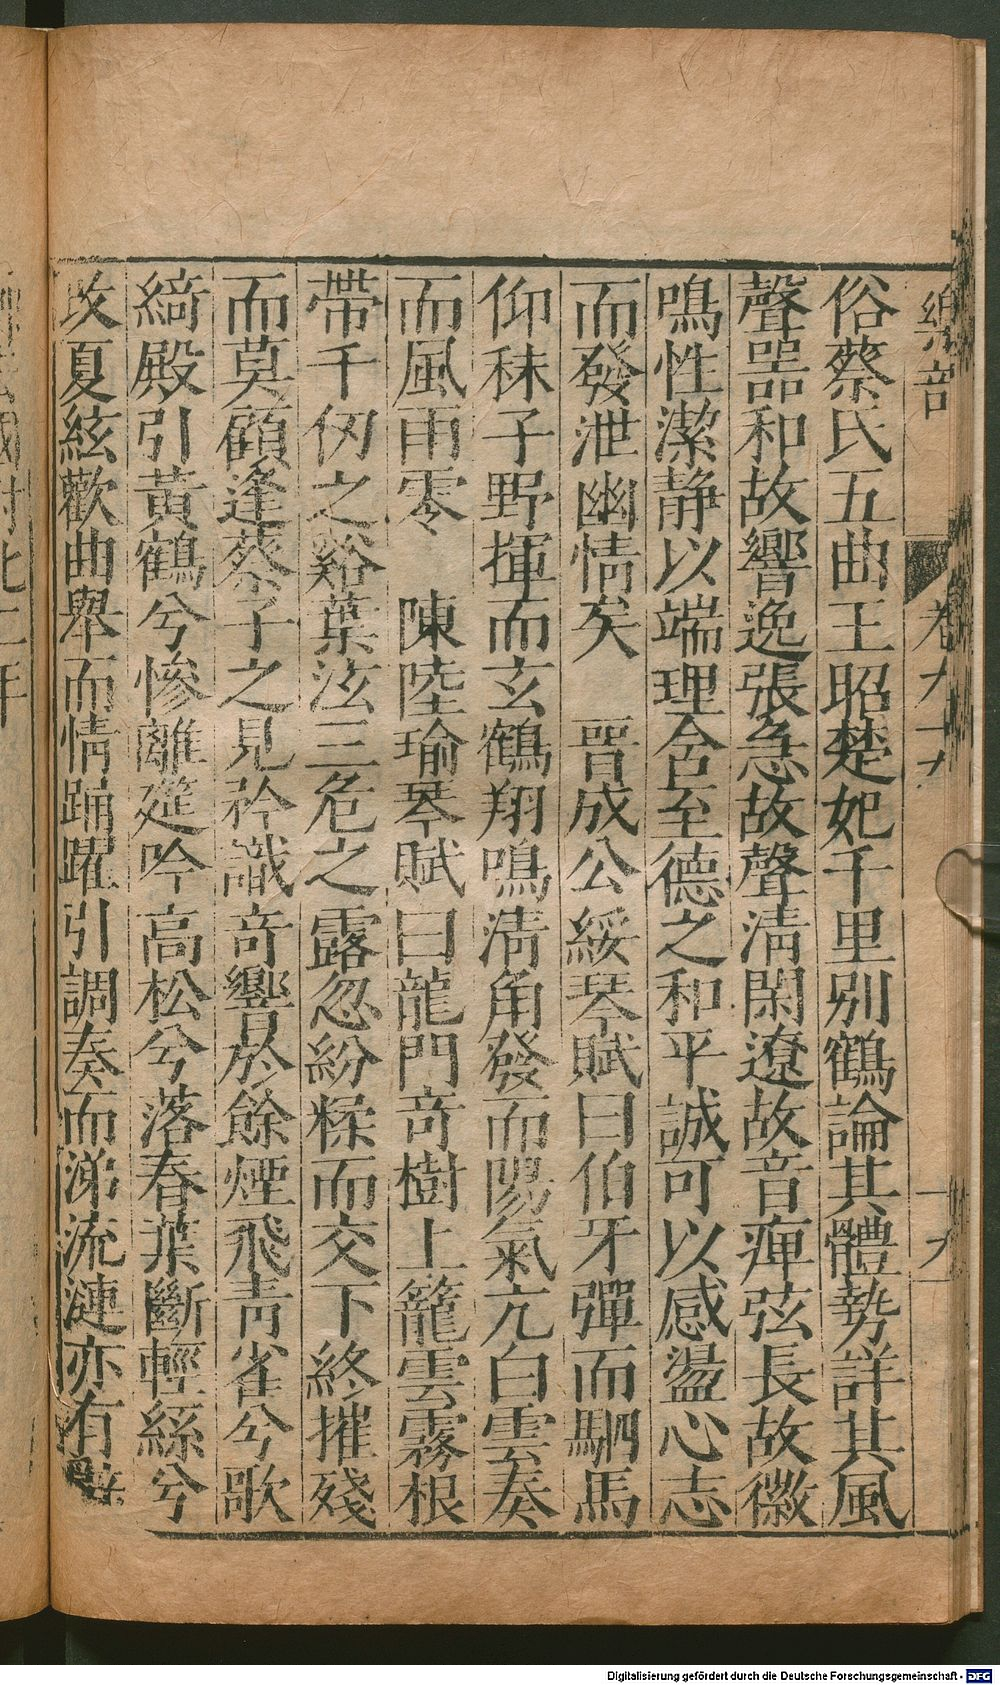 樂部
卷
俗蔡氏五曲王昭楚妃千里别鶴論其體勢詳其風
聲噐和故響逸張急故聲清閑遼故音痺弦長故徽
鳴性潔静以端理含至德之和平誠可以感盪心志
而發泄幽情矣　晉成公綏琴賦曰伯牙彈而駟馬
仰秣子野揮而玄鶴翔鳴清角發而陽氣亢白雲奏
而風雨零　陳陸瑜琴賦曰龍門竒樹上籠雲霧根
帶千仞之谿葉泫三危之露忽紛糅而交下終摧殘
而莫顧逢蔡子之見矜識竒響於餘煙飛青雀兮歌
綺殿引黃鶴兮慘離筵吟高松兮落春葉斷輕絲兮
改夏絃歡曲舉而情踊躍引調奏而涕流漣亦有
Digitalisierung gefördert durch die Deutsche Forschungsgemeinschaft - DFG